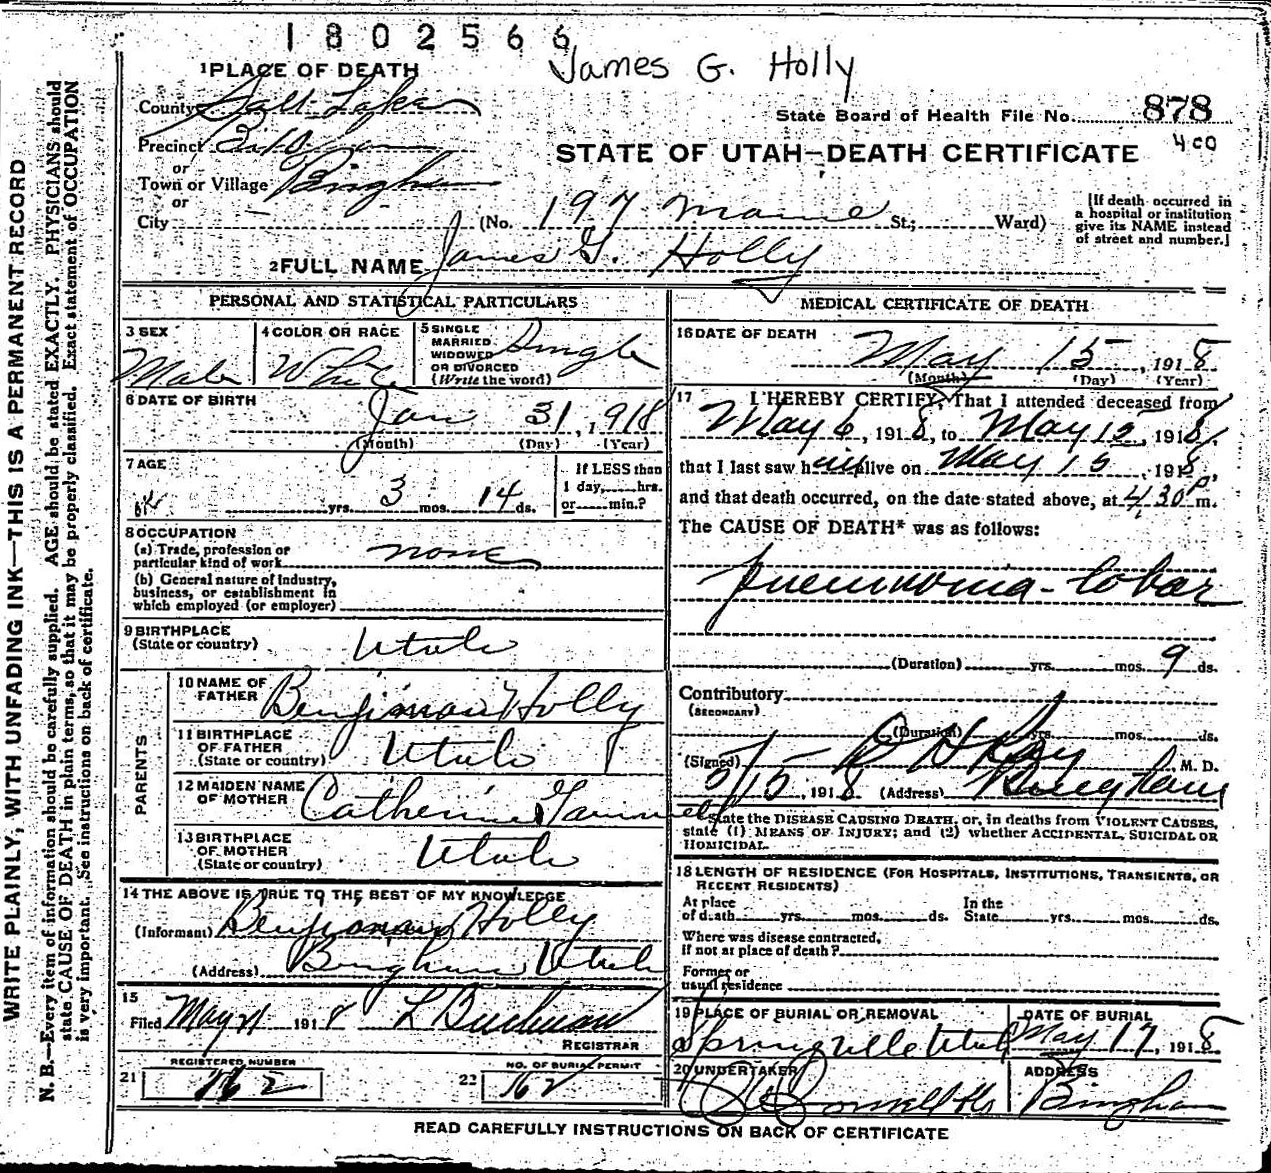 1802566
James G. Holly
1 PLACE OF DEATH
County Salt Lake
State Board of Health File No. 878
400
Precinct
or
Town or Village Bingham
or
City
STATE OF UTAH—DEATH CERTIFICATE
(No. 197 Maine St.; Ward)
[If death occurred in
a hospital or institution
give its NAME instead
of street and number.]
2 FULL NAME James G. Holly
PERSONAL AND STATISTICAL PARTICULARS
3 SEX
Male
4 COLOR OR RACE
White
5 SINGLE
MARRIED
WIDOWED
OR DIVORCED
(Write the word)
Single
6 DATE OF BIRTH
Jan 31, 1918
(Month) (Day) (Year)
7 AGE
yrs. 3 mos. 14 ds.
If LESS than
1 day, hrs.
or min.?
8 OCCUPATION
(a) Trade, profession or
particular kind of work none
(b) General nature of Industry,
business, or establishment in
which employed (or employer)
9 BIRTHPLACE
(State or country) Utah
PARENTS
10 NAME OF
FATHER Benjiman Holly
11 BIRTHPLACE
OF FATHER
(State or country) Utah
12 MAIDEN NAME
OF MOTHER Catherine
13 BIRTHPLACE
OF MOTHER
(State or country) Utah
14 THE ABOVE IS TRUE TO THE BEST OF MY KNOWLEDGE
(Informant) Benjiman Holly
(Address) Bingham Utah
15
Filed May 21 1918 L Buchman
REGISTRAR
REGISTERED NUMBER
21 162
NO. OF BURIAL PERMIT
22 162
MEDICAL CERTIFICATE OF DEATH
16 DATE OF DEATH
May 15, 1918
(Month) (Day) (Year)
17 I HEREBY CERTIFY, That I attended deceased from
May 6, 1918, to May 15, 1918,
that I last saw him alive on May 15, 1918,
and that death occurred, on the date stated above, at 4 30 P. m.
The CAUSE OF DEATH* was as follows:
pneumonia - lobar
(Duration) yrs. mos. 9 ds.
Contributory
(SECONDARY)
(Duration) yrs. mos. ds.
(Signed) M. D.
5/15, 1918 (Address) Bingham
State the DISEASE CAUSING DEATH, or, in deaths from VIOLENT CAUSES,
state (1) MEANS OF INJURY; and (2) whether ACCIDENTAL, SUICIDAL OR
HOMICIDAL.
18 LENGTH OF RESIDENCE (FOR HOSPITALS, INSTITUTIONS, TRANSIENTS, OR
RECENT RESIDENTS)
At place
of death yrs. mos. ds.
In the
State yrs. mos. ds.
Where was disease contracted,
If not at place of death?
Former or
usual residence
19 PLACE OF BURIAL OR REMOVAL
Springville Utah
DATE OF BURIAL
May 17, 1918
20 UNDERTAKER
ADDRESS
Bingham
READ CAREFULLY INSTRUCTIONS ON BACK OF CERTIFICATE
WRITE PLAINLY, WITH UNFADING INK—THIS IS A PERMANENT RECORD
N. B.—Every item of information should be carefully supplied. AGE should be stated EXACTLY. PHYSICIANS should
state CAUSE OF DEATH in plain terms, so that it may be properly classified. Exact statement of OCCUPATION
is very important. See instructions on back of certificate.